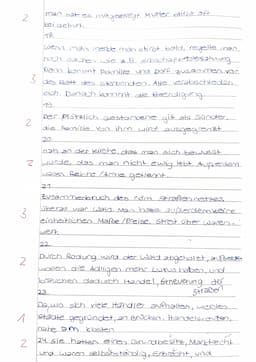 2 man hat es mitgeteilt. Mutter stirbt oft
bei Geburt.
18
Wenn man merkte man stirbt bald, regelte man
noch sachen wie z.B.
3 Dann kommt Familie und Dorf zusammen vor
das Bett des sterbenden. Alle verabschieden
sich. Danach kommt die Beerdigung.
19
2 Der Plötzlich gestorbene gilt als Sünder,
die Familie von ihm wird ausgegrenzt
20
nah an der Kirche, das man sich bewusst
2 wurde, das man nicht ewig lebt. Außerdem
waren Reiche/Arme getrennt.
21
3 Zusammenbruch des röm. Straßennetzes
überall war Wald. Man hatte außerdem keine
einheitlichen Maße/Preise. Streit über waren.
wert
22
2 Durch Rodung wird der Wald abgeholzt,
waren die Adligen mehr Luxus haben, und
brauchen dadurch Handel, Erneuerung der
23 straßen
Da, wo sich viele Händler aufhalten, werden
1 Städte gegründet, an Brücken, Handelsrouten,
nahe am Kloster
2 24 sie hatten eines Marktrecht
und waren selbstständig, und